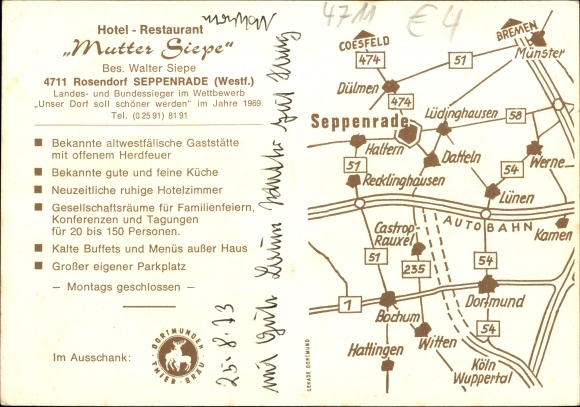 Hotel - Restaurant
„Mutter Siepe"
Bes. Walter Siepe
4711 Rosendorf SEPPENRADE (Westf.)
Landes- und Bundessieger im Wettbewerb
„Unser Dorf soll schöner werden" im Jahre 1969.
Tel. (0 25 91) 81 91
Bekannte altwestfälische Gaststätte
mit offenem Herdfeuer
Bekannte gute und feine Küche
Neuzeitliche ruhige Hotelzimmer
Gesellschaftsräume für Familienfeiern,
Konferenzen und Tagungen
für 20 bis 150 Personen.
Kalte Buffets und Menüs außer Haus
Großer eigener Parkplatz
— Montags geschlossen —
Im Ausschank:
DORTMUNDER
THIER-BRÄU
25.8.73
4711
€4
GEHADE DORTMUND
COESFELD
474
BREMEN
Münster
51
Dülmen
474
Lüdinghausen
58
Seppenrade
Haltern
Datteln
Werne
51
54
Recklinghausen
Lünen
AUTOBAHN
Kamen
Castrop-
Rauxel
51
235
54
1
Dortmund
Bochum
54
Witten
Hattingen
Köln
Wuppertal